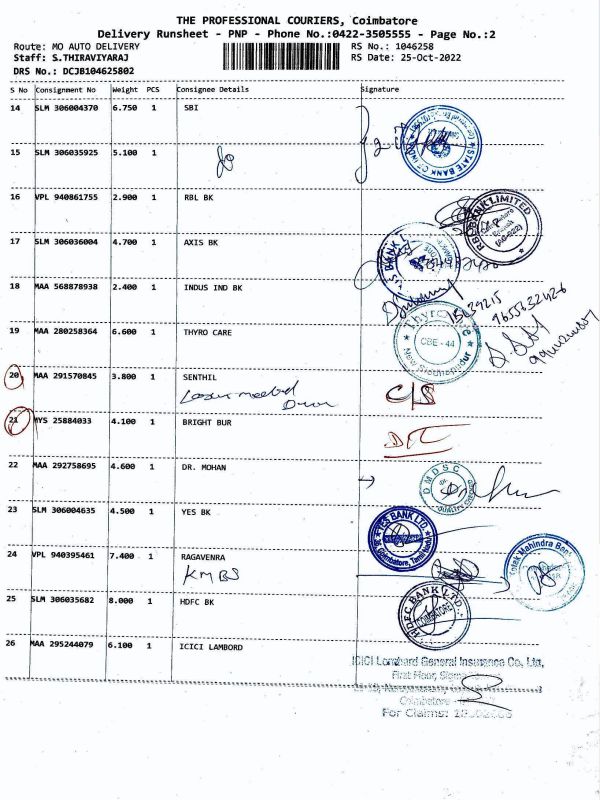 THE PROFESSIONAL COURIERS, Coimbatore
Delivery Runsheet - PNP - Phone No.:0422-3505555 - Page No.:2
Route: MO AUTO DELIVERY RS No.: 1046258
Staff: S.THIRAVIYARAJ RS Date: 25-Oct-2022
DRS No.: DCJB104625802
S No Consignment No Weight PCS Consignee Details Signature
14 SLM 306004370 6.750 1 SBI
STATE BANK OF INDIA
15 SLM 306035925 5.100 1
16 VPL 940861755 2.900 1 RBL BK
RBL BANK LIMITED
17 SLM 306036004 4.700 1 AXIS BK
18 MAA 568878938 2.400 1 INDUS IND BK
9655632426
19 MAA 280258364 6.600 1 THYRO CARE
Thyrocare
CBE - 44
New Siddhapudur
20 MAA 291570845 3.800 1 SENTHIL
C/S
21 MYS 25884033 4.100 1 BRIGHT BUR
22 MAA 292758695 4.600 1 DR. MOHAN
DMDSC
23 SLM 306004635 4.500 1 YES BK
YES BANK LTD.
Coimbatore, Tamil Nadu
24 VPL 940395461 7.400 1 RAGAVENRA
KMBS
Kotak Mahindra Bank
25 SLM 306035682 8.000 1 HDFC BK
HDFC BANK LTD.
COIMBATORE
26 MAA 295244079 6.100 1 ICICI LAMBORD
ICICI Lombard General Insurance Co. Ltd.
First Floor,
Coimbatore
For Claims: